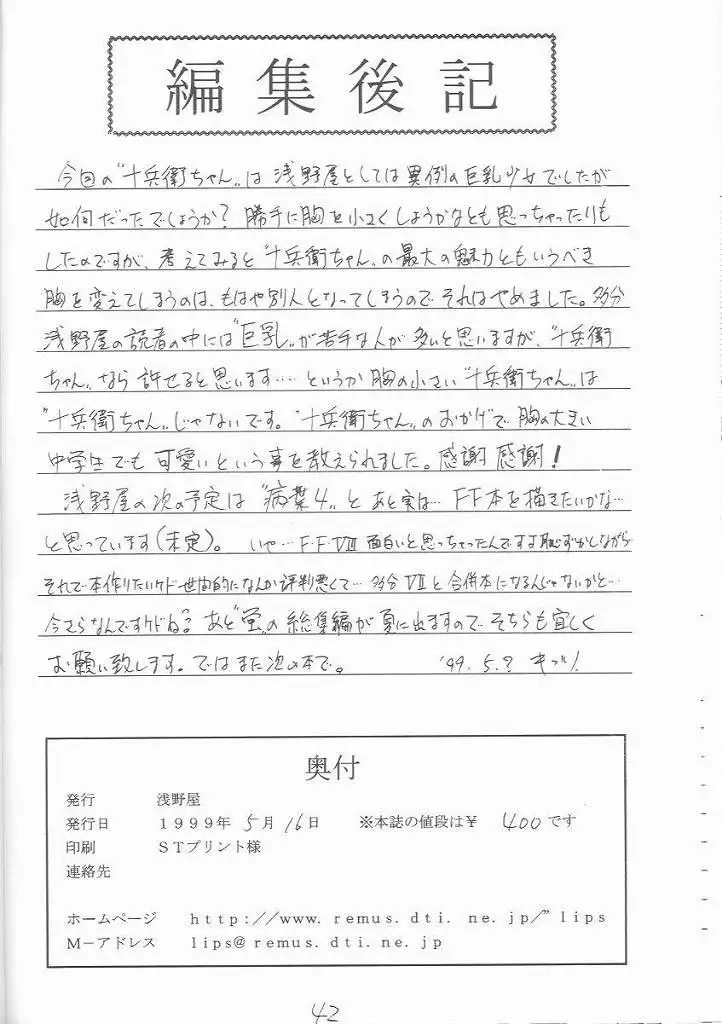 編集後記
今回の"十兵衛ちゃん"は浅野屋としては異例の巨乳少女でしたが
如何だったでしょうか？勝手に胸を小さくしようかなとも思っちゃったりも
したのですが、考えてみると"十兵衛ちゃん"の最大の魅力ともいうべき
胸を変えてしまうのは、もはや別人となってしまうのでそれはやめました。多分
浅野屋の読者の中には"巨乳"が苦手な人が多いと思いますが、"十兵衛
ちゃん"なら許せると思います‥‥というか胸の小さい"十兵衛ちゃん"は
"十兵衛ちゃん"じゃないです。"十兵衛ちゃん"のおかげで胸の大きい
中学生でも可愛いという事を教えられました。感謝感謝！
浅野屋の次の予定は"病葉4"とあと実は…FF本を描きたいかな…
と思っています(未定)。いや…F・FⅧ面白いと思っちゃったんですよ恥ずかしながら
それで本作りたいケド世間的になんか評判悪くて…多分Ⅶと合併本になるんじゃないかと…
今さらなんですケドね？あと"蛍"の総集編が夏に出ますのでそちらも宜しく
お願い致します。ではまた次の本で。 '99.5.?
奥付
発行 浅野屋
発行日 1999年5月16日 ※本誌の値段は¥400です
印刷 STプリント様
連絡先
ホームページ http://www.remus.dti.ne.jp/~lips
M－アドレス lips@remus.dti.ne.jp
42